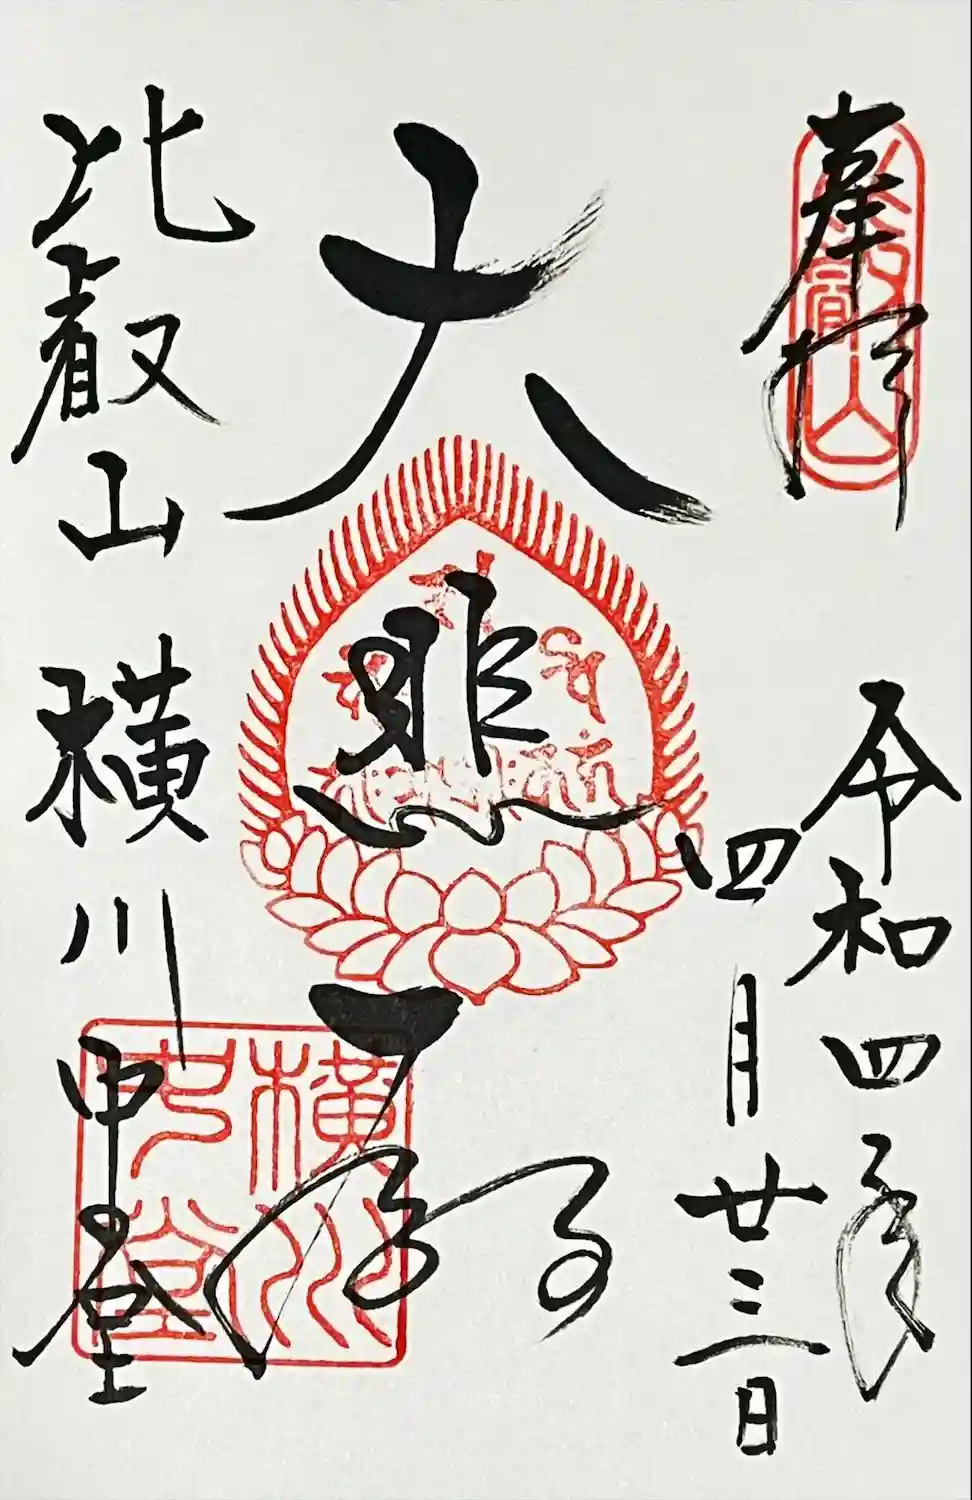 奉拝
令和四年
四月廿三日
大悲殿
比叡山 横川中堂
比叡山
横川
中堂